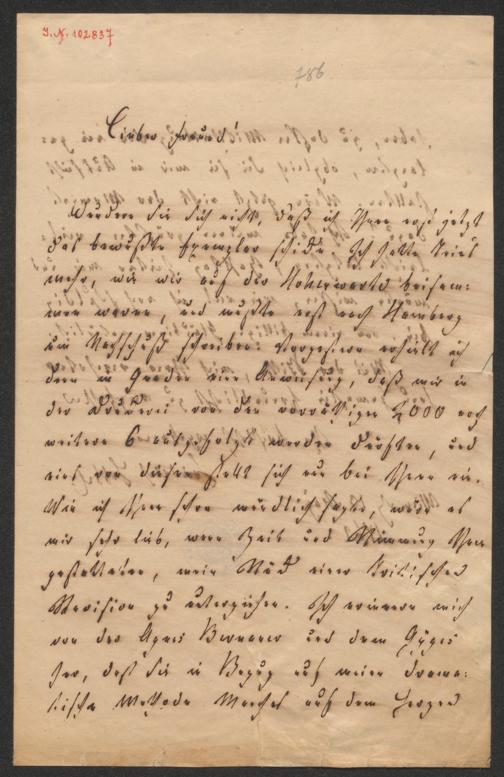 I. N. 102837
186
Lieber Freund!
Wundern Sie Sich nicht, daß ich Ihnen erst jetzt
das bewußte Exemplar schicke. Ich hatte keins
mehr, wie wir auf der Hohenwarte beisam-
men waren, und mußte erst nach Hamburg
um Nachschuß schreiben. Vorgestern erhielt ich
denn in Gnaden eine Anweisung, daß mir in
der Druckerei von den vorräthigen 2000 noch
weitere 6 ausgefolgt werden dürften, und
eins von diesen stellt sich nun bei Ihnen ein.
Wie ich Ihnen schon mündlich sagte, wird es
mir sehr lieb, wenn Zeit und Stimmung Ihnen
gestatteten, mein Stück einer kritischen
Revision zu unterziehen. Ich erinnere mich
von der Agnes Bernauer und dem Gyges
her, daß Sie in Bezug auf meine drama-
tische Methode Manches auf dem Herzen